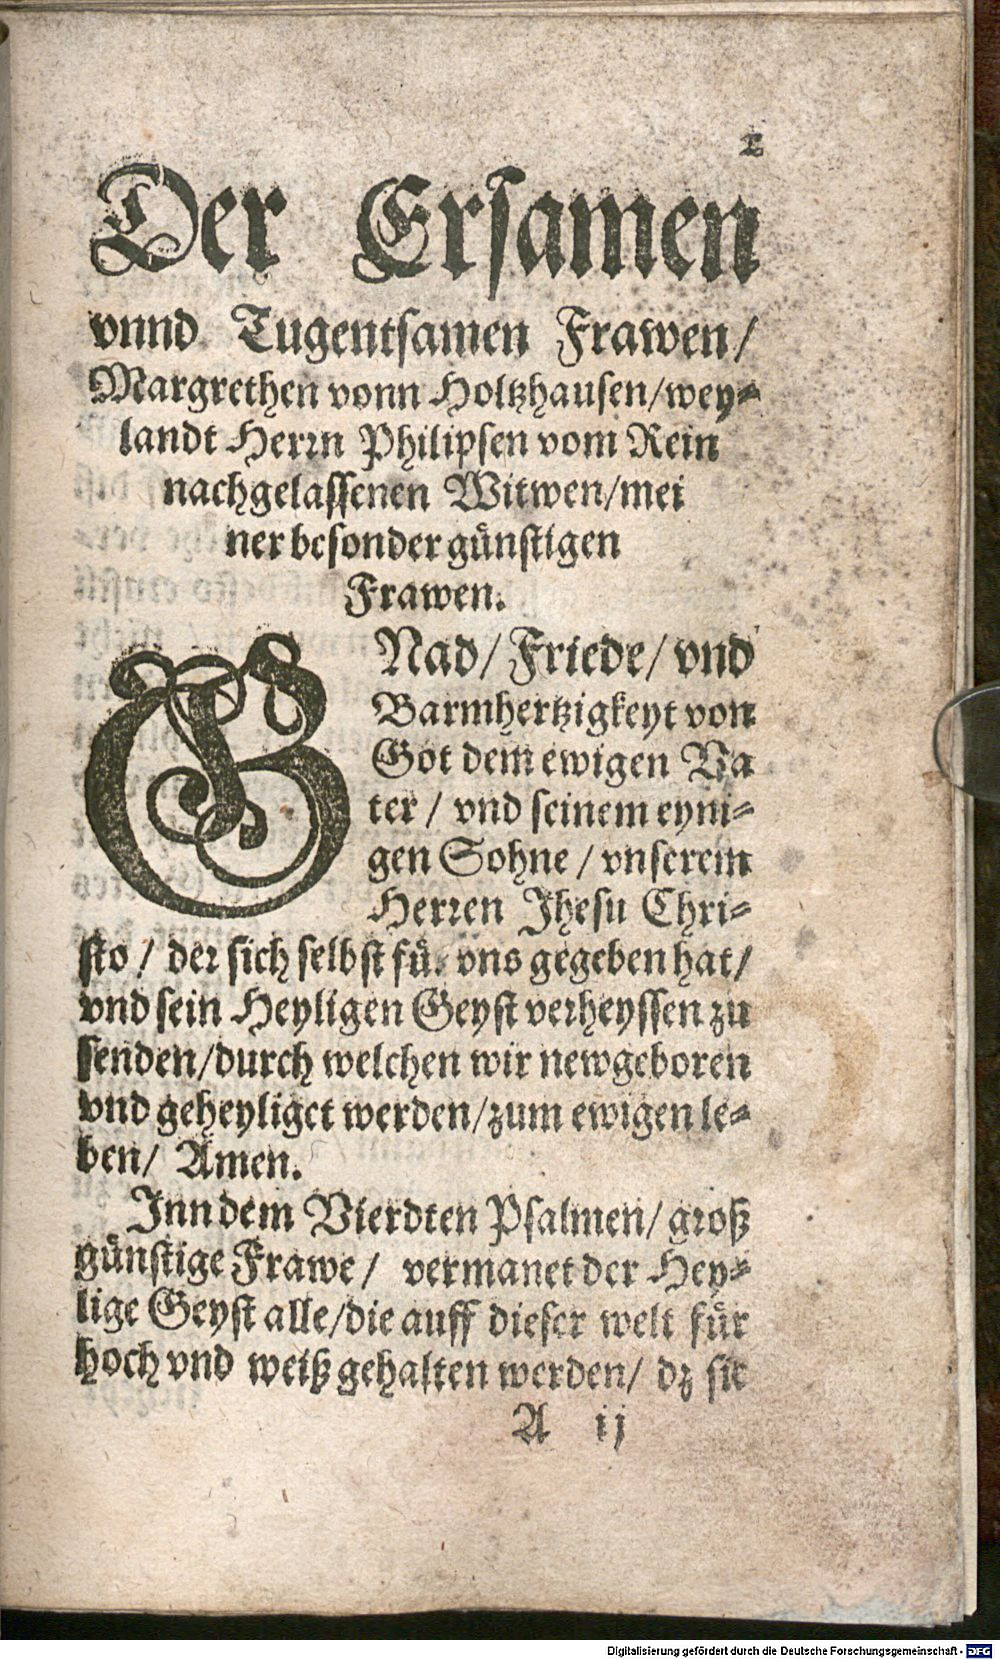 2
Der Ersamen
vnnd Tugentsamen Frawen/
Margrethen vonn Holtzhausen/wey-
landt Herrn Philipsen vom Rein
nachgelassenen Witwen/mei
ner besonder günstigen
Frawen.
GNad/ Friede/ vnd
Barmhertzigkeyt von
Got dem ewigen Va
ter / vnd seinem eyni-
gen Sohne / vnserem
Herren Jhesu Chri-
sto / der sich selbst für vns gegeben hat/
vnd sein Heyligen Geyst verheyssen zu
senden/durch welchen wir newgeboren
vnd geheyliget werden/zum ewigen le-
ben/ Amen.
Inn dem Vierdten Psalmen/ groß
günstige Frawe / vermanet der Hey-
lige Geyst alle/die auff dieser welt für
hoch vnd weiß gehalten werden/ dz sie
A ij
Digitalisierung gefördert durch die Deutsche Forschungsgemeinschaft - DFG